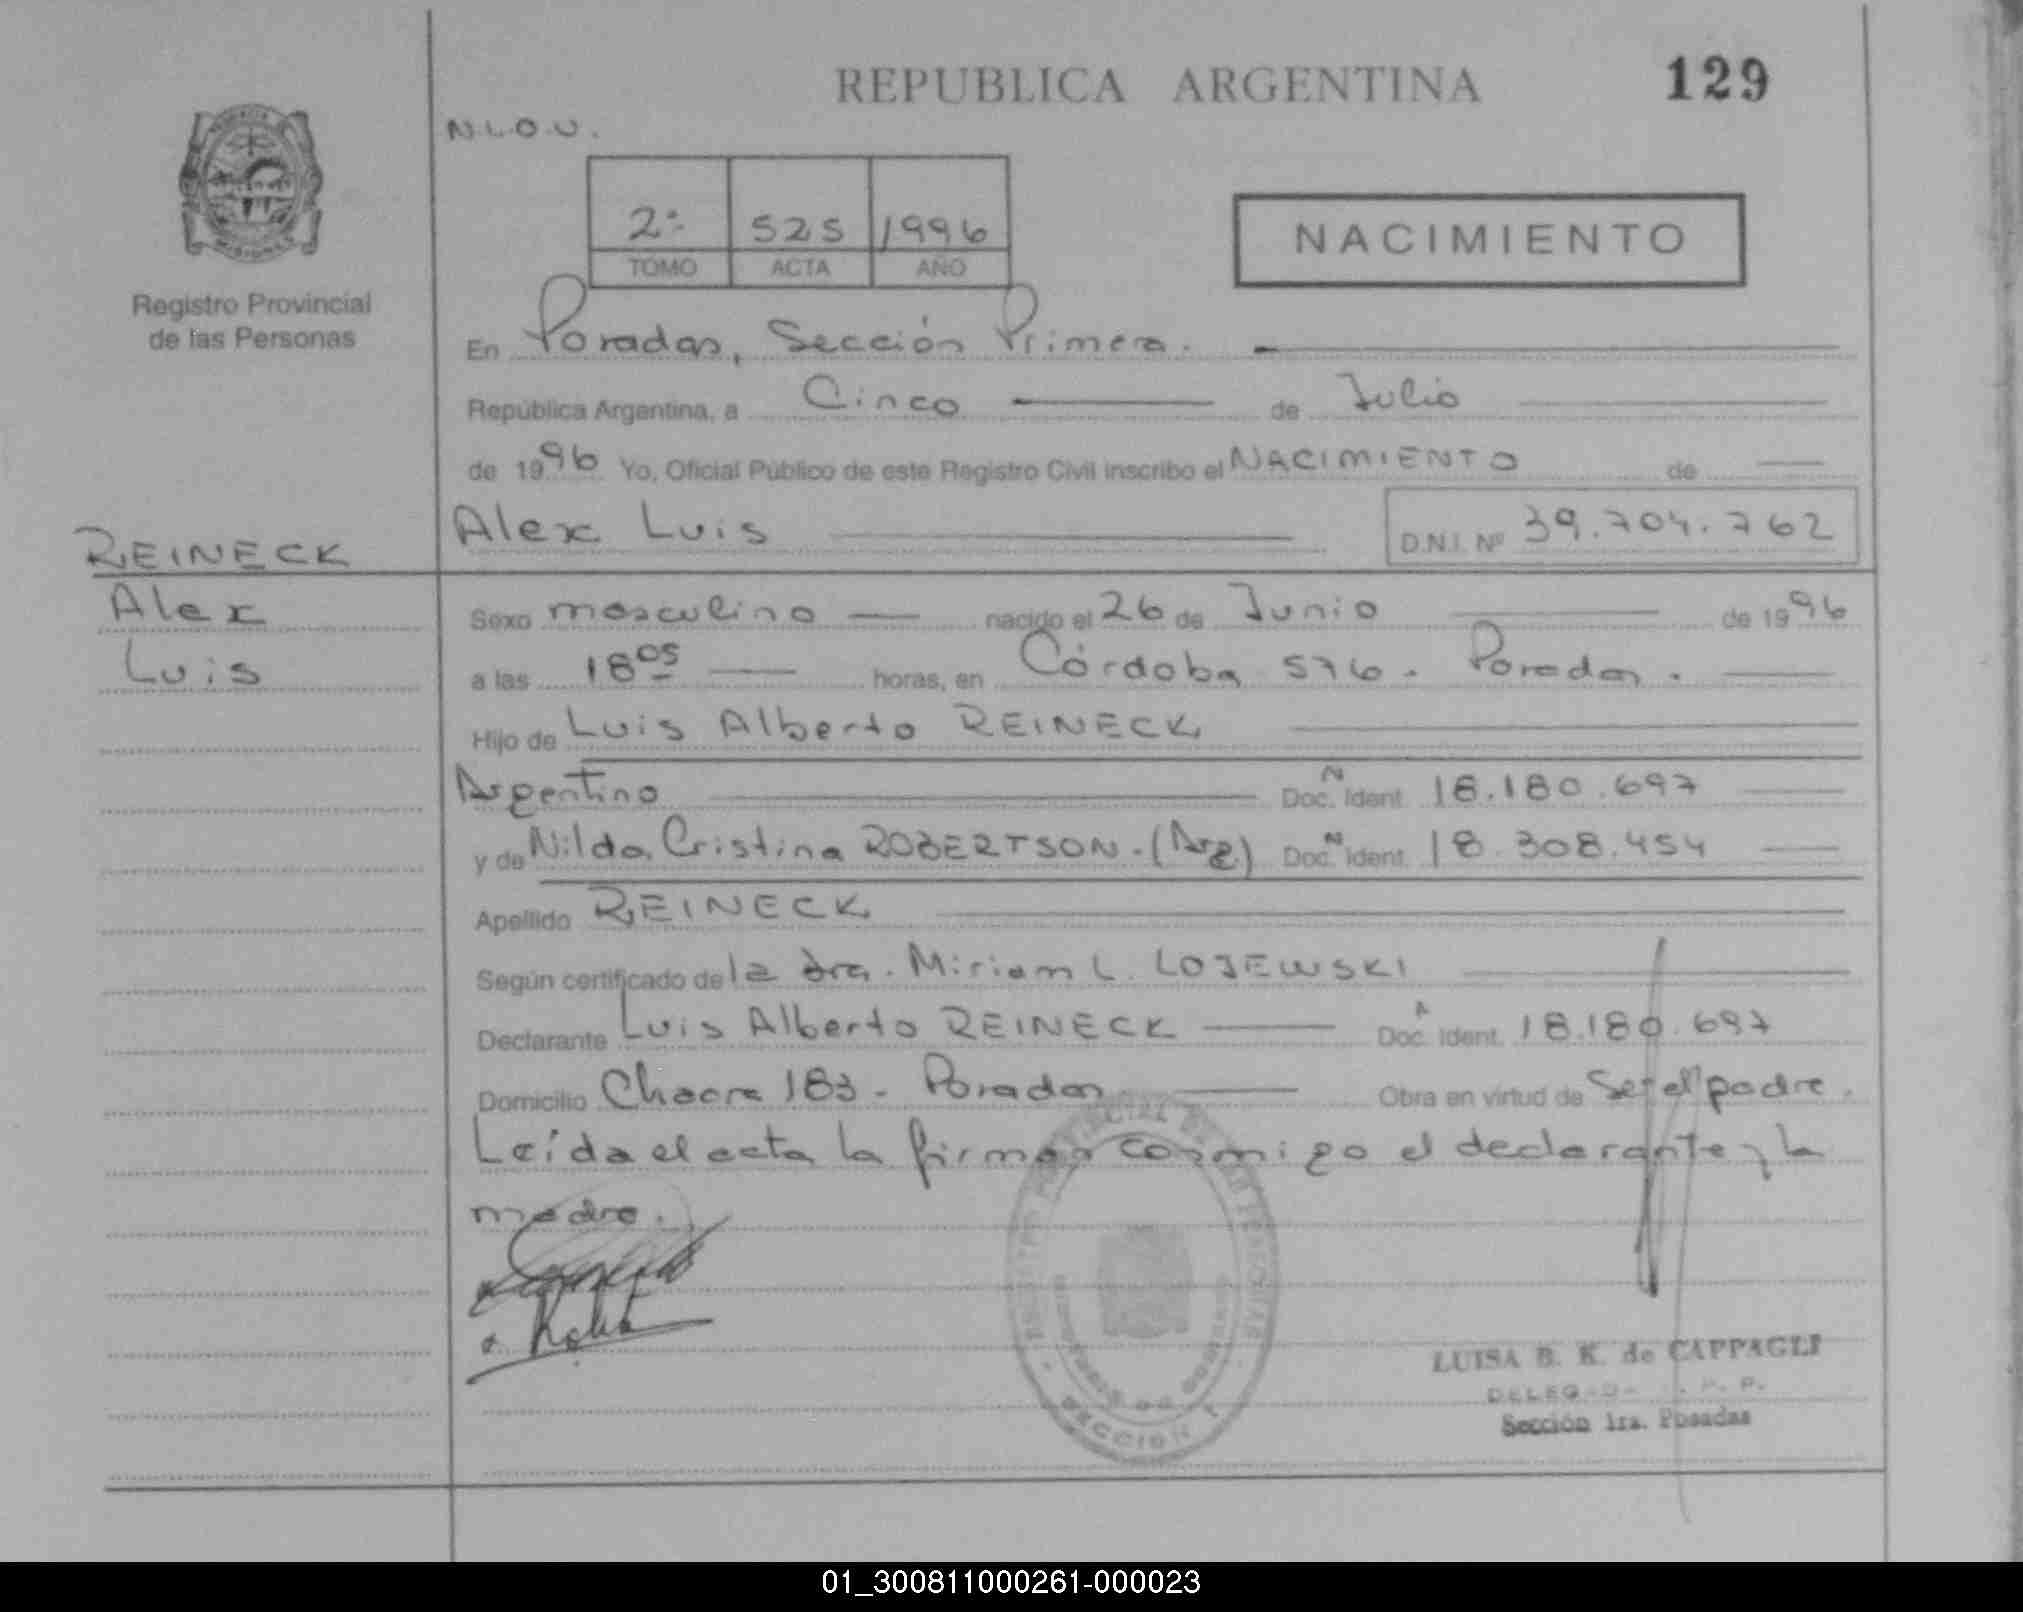 REPUBLICA ARGENTINA
129
N.L.O.U.
2º 525 1996
TOMO ACTA AÑO
NACIMIENTO
Registro Provincial
de las Personas
En Posadas, Sección Primera.
República Argentina, a Cinco de Julio
de 1996 Yo, Oficial Público de este Registro Civil inscribo el NACIMIENTO de
Alex Luis D.N.I. Nº 39.704.762
REINECK
Alex
Luis
Sexo masculino nacido el 26 de Junio de 1996
a las 18 05 horas, en Córdoba 576. Posadas.
Hijo de Luis Alberto REINECK
Argentino Doc. N Ident. 18.180.697
y de Nilda Cristina ROBERTSON.(Arg) Doc. N Ident. 18.308.454
Apellido REINECK
Según certificado de la dra. Miriam L. LOJEWSKI
Declarante Luis Alberto REINECK Doc. Ident. 18.180.697
Domicilio Chacra 183 - Posadas Obra en virtud de Ser el padre.
Leída el acta la firman conmigo el declarante y la
madre.
REGISTRO PROVINCIAL DE LAS PERSONAS
SECCION 1
LUISA B. K. de CAPPAGLI
Sección 1ra. Posadas
01_300811000261-000023